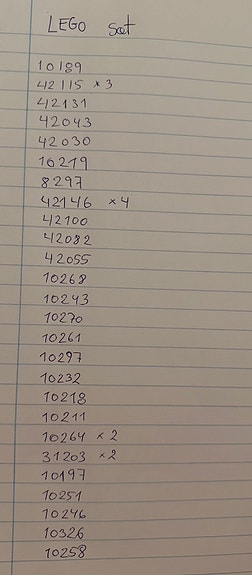 LEGO set
10189
42115 x 3
42131
42043
42030
10219
8297
42146 x 4
42100
42082
42055
10268
10243
10270
10261
10297
10232
10218
10211
10264 x 2
31203 x 2
10197
10251
10246
10326
10258